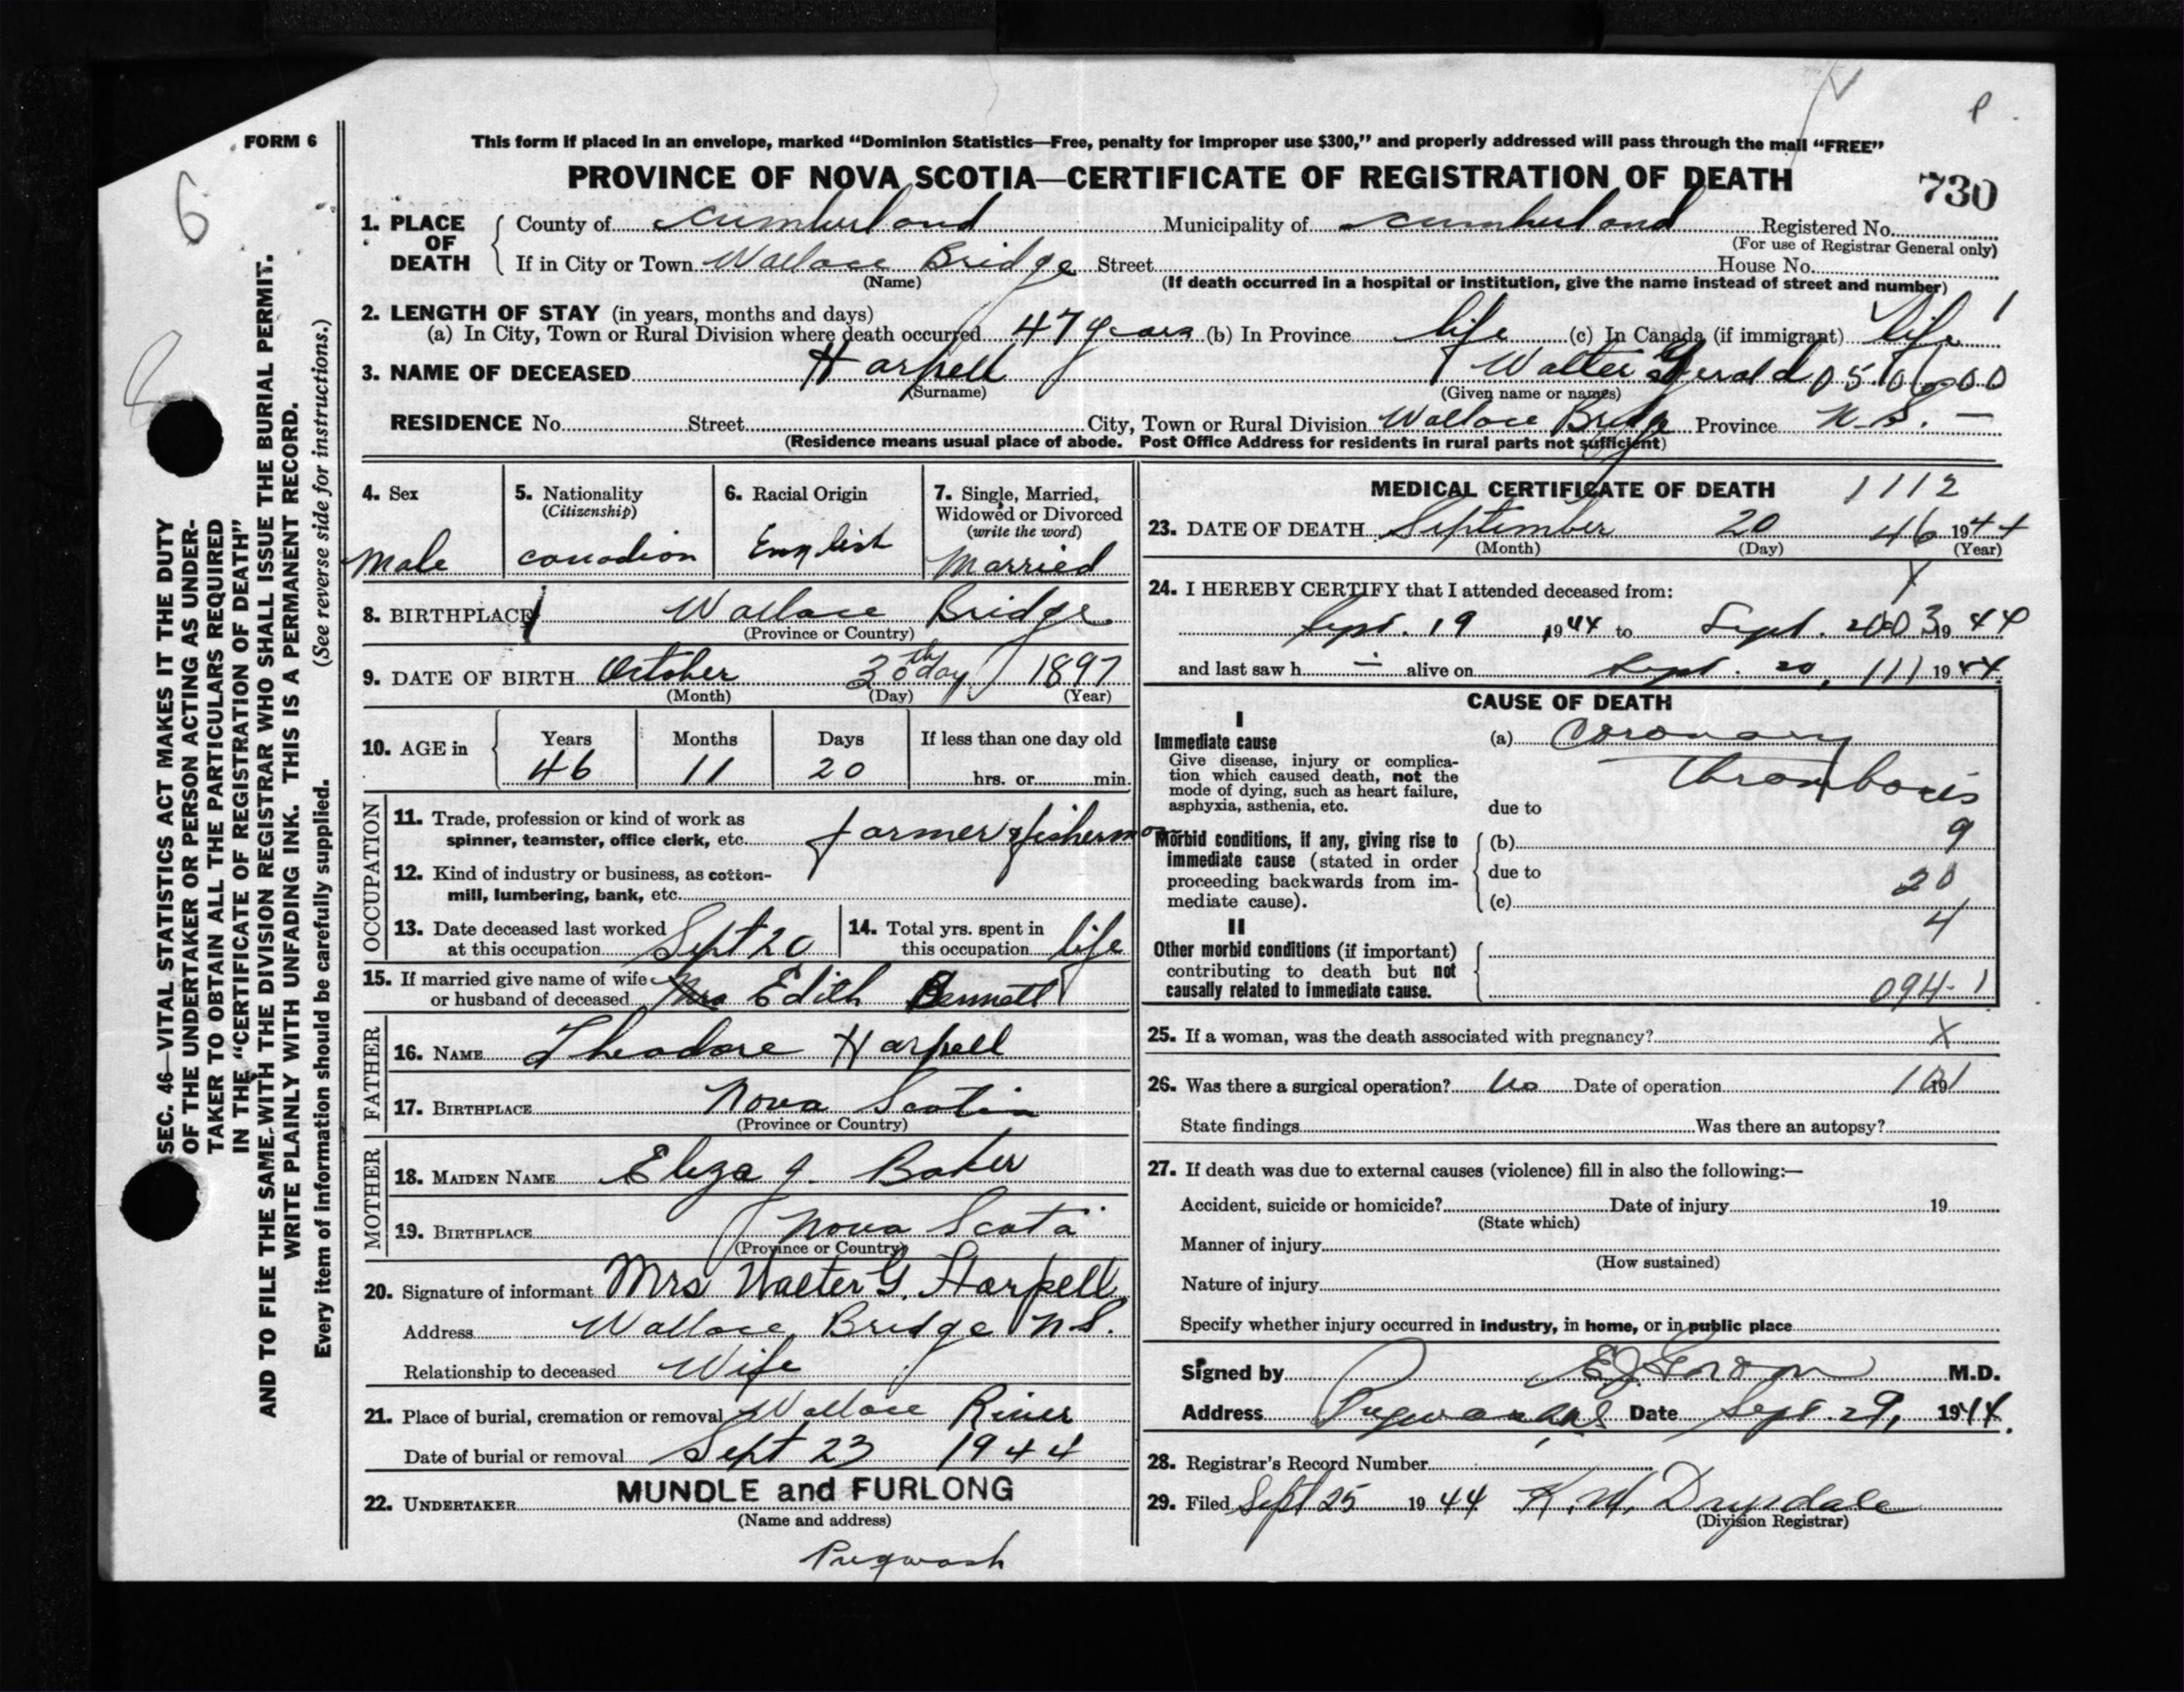 FORM 6
6
8
P
This form if placed in an envelope, marked “Dominion Statistics—Free, penalty for improper use $300,” and properly addressed will pass through the mail “FREE”
PROVINCE OF NOVA SCOTIA—CERTIFICATE OF REGISTRATION OF DEATH
730
1. PLACE OF DEATH
County of Cumberland Municipality of Cumberland Registered No.
(For use of Registrar General only)
If in City or Town Wallace Bridge Street House No.
(Name) (If death occurred in a hospital or institution, give the name instead of street and number)
2. LENGTH OF STAY (in years, months and days)
(a) In City, Town or Rural Division where death occurred 47 years (b) In Province life (c) In Canada (if immigrant) life
3. NAME OF DECEASED Harpell Walter Gerald
(Surname) (Given name or names)
RESIDENCE No. Street City, Town or Rural Division Wallace Bridge Province N.S. —
(Residence means usual place of abode. Post Office Address for residents in rural parts not sufficient)
4. Sex
Male
5. Nationality
(Citizenship)
Canadian
6. Racial Origin
English
7. Single, Married,
Widowed or Divorced
(write the word)
Married
8. BIRTHPLACE Wallace Bridge
(Province or Country)
9. DATE OF BIRTH October 30th day 1897
(Month) (Day) (Year)
10. AGE in
Years Months Days If less than one day old
46 11 20 hrs. or min.
OCCUPATION
11. Trade, profession or kind of work as
spinner, teamster, office clerk, etc. farmer & fisherman
12. Kind of industry or business, as cotton-
mill, lumbering, bank, etc.
13. Date deceased last worked
at this occupation Sept 20
14. Total yrs. spent in
this occupation life
15. If married give name of wife
or husband of deceased Mrs Edith Bennett
FATHER
16. NAME Theodore Harpell
17. BIRTHPLACE Nova Scotia
(Province or Country)
MOTHER
18. MAIDEN NAME Eliza J. Baker
19. BIRTHPLACE Nova Scota
(Province or Country)
20. Signature of informant Mrs Walter G. Harpell
Address Wallace Bridge N.S.
Relationship to deceased Wife
21. Place of burial, cremation or removal Wallace River
Date of burial or removal Sept 23 1944
22. UNDERTAKER MUNDLE and FURLONG
(Name and address)
Pugwash
MEDICAL CERTIFICATE OF DEATH 1112
23. DATE OF DEATH September 20 46 1944
(Month) (Day) (Year)
24. I HEREBY CERTIFY that I attended deceased from:
Sept. 19 1944 to Sept. 20 003 1944
and last saw h alive on Sept. 20, 111 1944
CAUSE OF DEATH
I
Immediate cause
Give disease, injury or complica-
tion which caused death, not the
mode of dying, such as heart failure,
asphyxia, asthenia, etc.
(a) Coronary
Thrombosis
due to
Morbid conditions, if any, giving rise to
immediate cause (stated in order
proceeding backwards from im-
mediate cause).
(b) 9
due to 20
(c)
4
II
Other morbid conditions (if important)
contributing to death but not
causally related to immediate cause.
094-1
25. If a woman, was the death associated with pregnancy? X
26. Was there a surgical operation? No Date of operation 19
State findings Was there an autopsy?
27. If death was due to external causes (violence) fill in also the following:—
Accident, suicide or homicide? Date of injury 19
(State which)
Manner of injury
(How sustained)
Nature of injury
Specify whether injury occurred in industry, in home, or in public place
Signed by M.D.
Address Pugwash, N.S. Date Sept. 29, 1944.
28. Registrar's Record Number
29. Filed Sept 25 1944 K. W. Drysdale
(Division Registrar)
SEC. 46—VITAL STATISTICS ACT MAKES IT THE DUTY
OF THE UNDERTAKER OR PERSON ACTING AS UNDER-
TAKER TO OBTAIN ALL THE PARTICULARS REQUIRED
IN THE “CERTIFICATE OF REGISTRATION OF DEATH”
AND TO FILE THE SAME WITH THE DIVISION REGISTRAR WHO SHALL ISSUE THE BURIAL PERMIT.
WRITE PLAINLY WITH UNFADING INK. THIS IS A PERMANENT RECORD.
Every item of information should be carefully supplied. (See reverse side for instructions.)